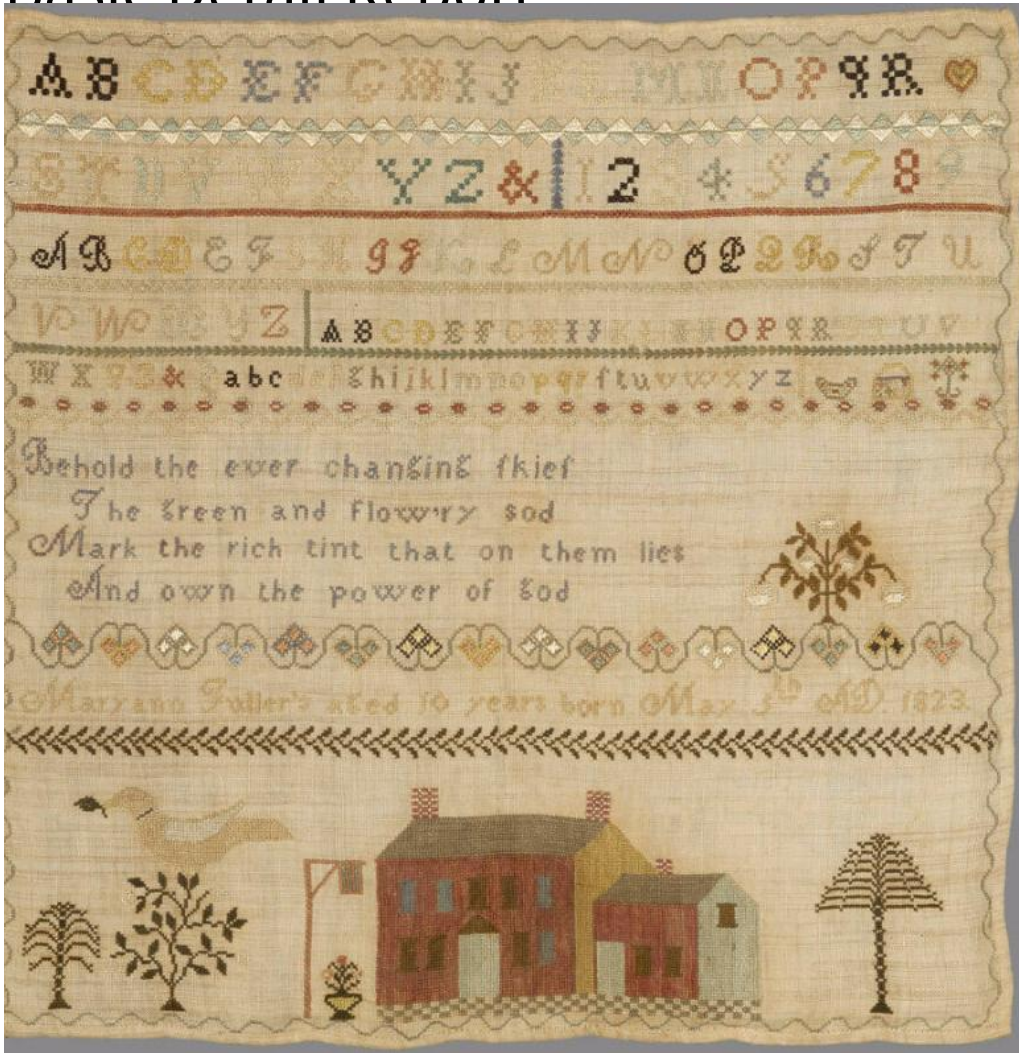 A B C D E F G H I J M N O P Q R
S T U V W X Y Z & 1 2 3 4 5 6 7 8 9
A B C D E F G H I J K L M N O P Q R S T U
V W X Y Z A B C D E F G H I J K L M N O P Q R T U V
W X Y Z & a b c d e f g h i j k l m n o p q r ſ t u v w x y z
Behold the ever changing ſkieſ
The green and flow'ry sod
Mark the rich tint that on them lies
And own the power of god
Maryann Fuller's aged 10 years born May 5th AD. 1823.